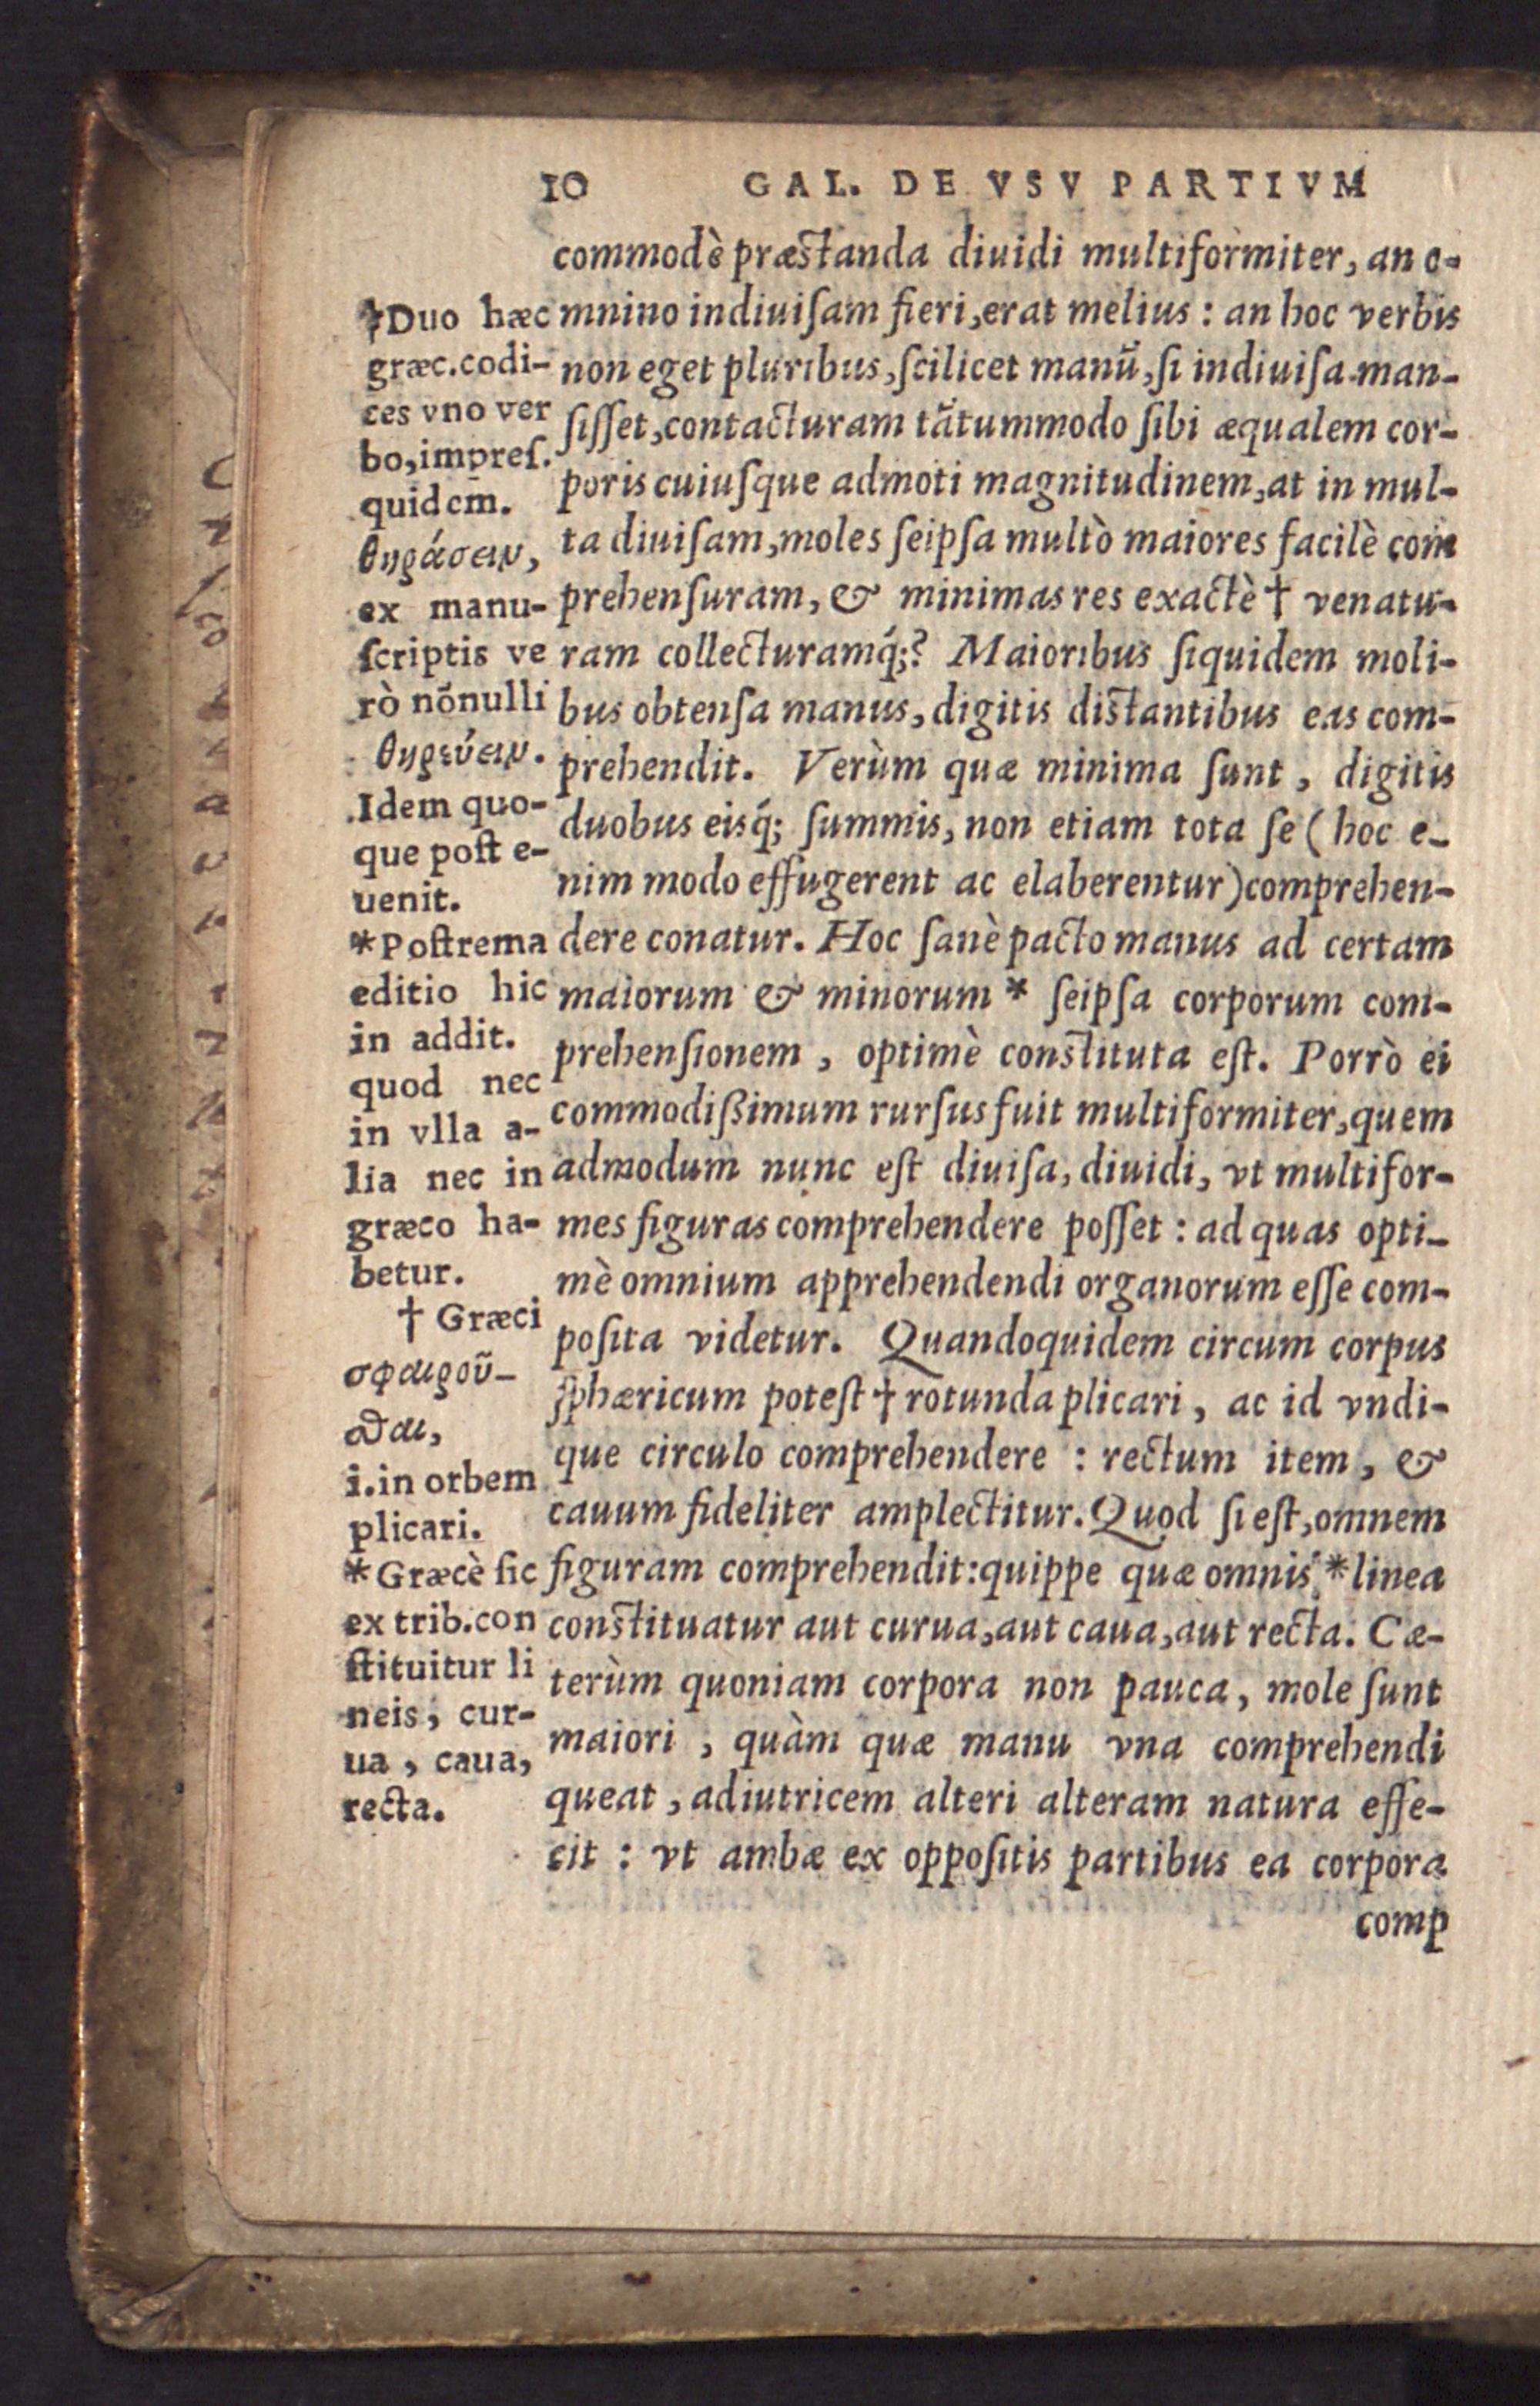 10 GAL. DE VSV PARTIVM
commodè præstanda diuidi multiformiter, an o-
mnino indiuiſam fieri, erat melius: an hoc verbis
non eget pluribus, ſcilicet manũ, ſi indiuiſa man-
ſiſſet, contacturam tãtummodo ſibi æqualem cor-
poris cuiuſque admoti magnitudinem, at in mul-
ta diuiſam, moles ſeipſa multò maiores facilè com
prehenſuram, & minimas res exactè † venatu-
ram collecturamq́;? Maioribus ſiquidem moli-
bus obtenſa manus, digitis distantibus eas com-
prehendit. Verùm quæ minima ſunt, digitis
duobus eisq́; ſummis, non etiam tota ſe (hoc e-
nim modo effugerent ac elaberentur) comprehen-
dere conatur. Hoc ſanè pacto manus ad certam
maiorum & minorum * ſeipſa corporum com-
prehenſionem, optimè constituta eſt. Porrò ei
commodißimum rurſus fuit multiformiter, quem
admodum nunc eſt diuiſa, diuidi, vt multifor-
mes figuras comprehendere poſſet: ad quas opti-
mè omnium apprehendendi organorum eſſe com-
poſita videtur. Quandoquidem circum corpus
ſphæricum poteſt † rotunda plicari, ac id vndi-
que circulo comprehendere: rectum item, &
cauum fideliter amplectitur. Quod ſi eſt, omnem
figuram comprehendit: quippe quæ omnis * linea
constituatur aut curua, aut caua, aut recta. Cæ-
terùm quoniam corpora non pauca, mole ſunt
maiori, quàm quæ manu vna comprehendi
queat, adiutricem alteri alteram natura effe-
cit: vt ambæ ex oppoſitis partibus ea corpora
comp
†Duo hæc
græc. codi-
ces vno ver
bo, impreſ.
quidem.
θηράσειν,
ex manu-
ſcriptis ve
rò nõnulli
θηρεύειν.
Idem quo-
que poſt e-
uenit.
*Poſtrema
editio hic
in addit.
quod nec
in vlla a-
lia nec in
græco ha-
betur.
† Græci
σφαιροῦ-
σθαι,
i. in orbem
plicari.
*Græcè ſic
ex trib. con
ſtituitur li
neis, cur-
ua, caua,
recta.